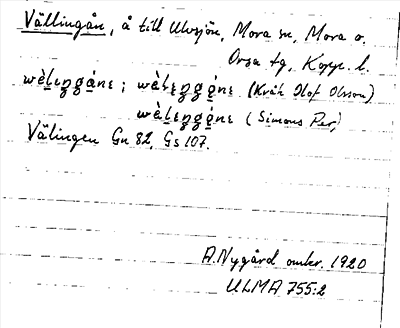 Vällingån, å till Ulvsjön, Mora sn, Mora o.
Orsa tg, Kopp. l.
(Kråk Olof Olsson)
(Simons Per)
Välingen Gn 82, Gs 107.
A. Nygård omkr. 1920
ULMA 755:2